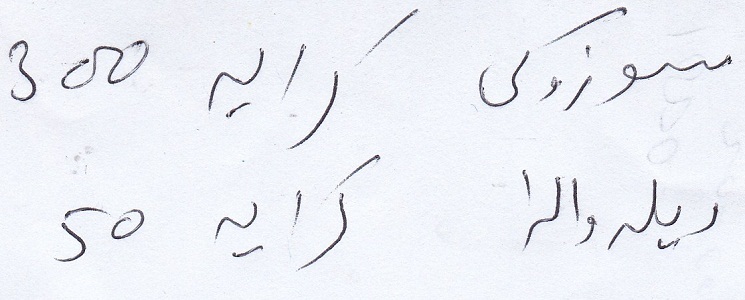 سوزوکی کرایہ 300
ریلہ والا کرایہ 50